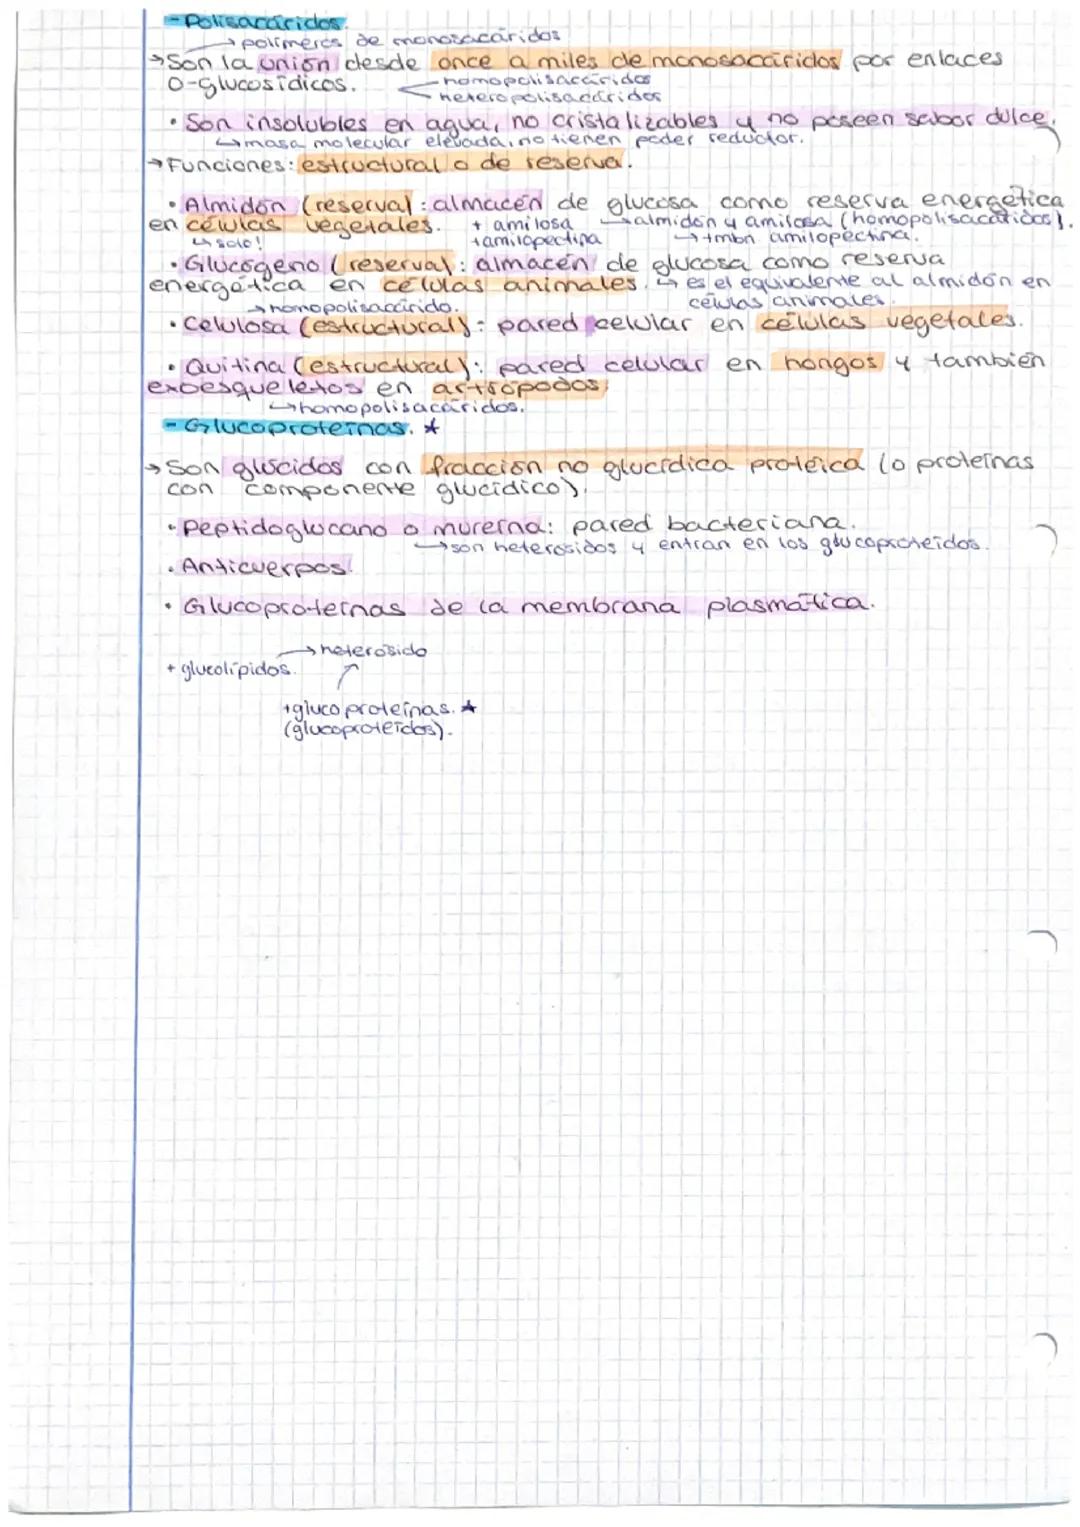 - Polisacáridos.
→ polímeros de monosacáridos
→ Son la unión desde once a miles de monosacáridos por enlaces
O-glucosídicos. homopolisacáridos
heteropolisacáridos
• Son insolubles en agua, no cristalizables y no poseen sabor dulce.
↳ masa molecular elevada, no tienen poder reductor.
→ Funciones: estructural o de reserva.
• Almidón (reserva): almacén de glucosa como reserva energética
en células vegetales. + amilosa → almidón y amilosa (homopolisacáridos).
↳ solo! + amilopectina → tmbn amilopectina.
• Glucógeno (reserva): almacén de glucosa como reserva
energética en células animales. ↳ es el equivalente al almidón en
→ homopolisacárido. células animales.
• Celulosa (estructural): pared celular en células vegetales.
• Quitina (estructural): pared celular en hongos y también
exoesqueletos en artrópodos
↳ homopolisacáridos.
- Glucoproteínas. ★
→ Son glúcidos con fracción no glucídica proteica (o proteínas
con componente glucídico).
• Peptidoglucano o mureína: pared bacteriana.
↳ son heterósidos y entran en los glucoproteídos.
• Anticuerpos.
• Glucoproteínas de la membrana plasmática.
→ heterósido
+ glucolípidos.
+ glucoproteínas. ★
(glucoproteídos).